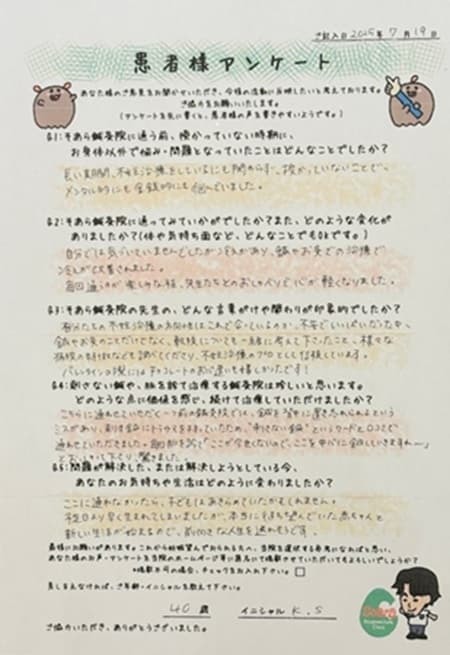 ご記入日 2025年 7月 19日
患者様アンケート
あなた様のご意見をお聞かせいただき、今後の活動に反映したいと考えております。
ご協力をお願いいたします。
(アンケートを先に書くと、患者様の声を書きやすいようです。)
Q1:そあら鍼灸院に通う前、授かっていない時期に、
お身体以外で悩み・問題となっていたことはどんなことでしたか?
長い期間、不妊治療をしているにも関わらず、授かっていないことで、
メンタル的にも金銭的にも悩んでいました。
Q2:そあら鍼灸院に通ってみていかがでしたか?また、どのような変化が
ありましたか?(体や気持ち面など、どんなことでもOKです。)
自分では気づいていませんでしたが冷えがあり、鍼やお灸での治療で
冷えが改善されました。
毎回通うのが楽しみな程、先生たちとのおしゃべりで心が軽くなりました。
Q3:そあら鍼灸院の先生の、どんな言葉がけや関わりが印象的でしたか?
自分たちの不妊治療の方向性はこれで合っているのか、不安でいっぱいだった中、
鍼やお灸のことだけでなく、転院についても一緒に考えて下さったこと。様々な
病院の情報なども調べてくださり、不妊治療のプロとして信頼しています。
バレンタインの頃にはチョコレートのお心遣いも嬉しかったです!
Q4:刺さない鍼や、脈を診て治療する鍼灸院は珍しいと思います。
どのような点に価値を感じ、続けて治療していただけましたか?
こちらに通わせていただく一つ前の鍼灸院では、鍼を背中に置き忘れられるという
ミスがあり、刺す鍼にトラウマをおぼえていたため、"刺さない鍼"というワードと口コミで
通わせていただきました。毎回脈を診て「ここが今良くないので、ここを中心に鍼をしていきますね〜」
とおっしゃって下さり、驚きました。
Q5:問題が解決した、または解決しようとしている今、
あなたのお気持ちや生活はどのように変わりましたか?
ここに通わなかったら、子どもはあきらめていたかもしれません。
予定日より早く生まれてしまいましたが、本当に待ち望んでいた赤ちゃんと
新しい生活が始まるので、前向きな人生を送れそうです。
最後にお願いがあります。これから妊娠望んでおられる方の、当院を選択する参考になればと思い、
あなた様のお声・アンケートを当院のホームページ等に匿名にて掲載させていただいてもよろしいでしょうか?
*掲載不可の場合、チェックをお入れ下さい。 □
差し支えなければ、ご年齢・イニシャルを教えて下さい。
40 歳 イニシャル K.S
ご協力いただき、ありがとうございました。